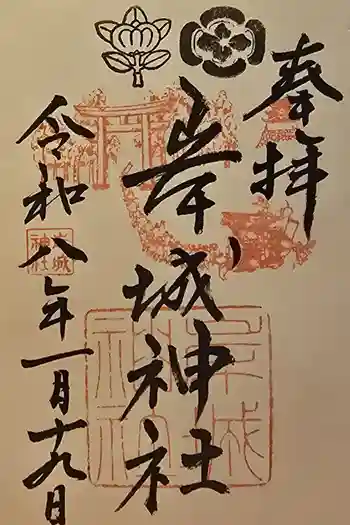 奉拝
岸城神社
令和八年一月十九日
岸城神社
岸城神社